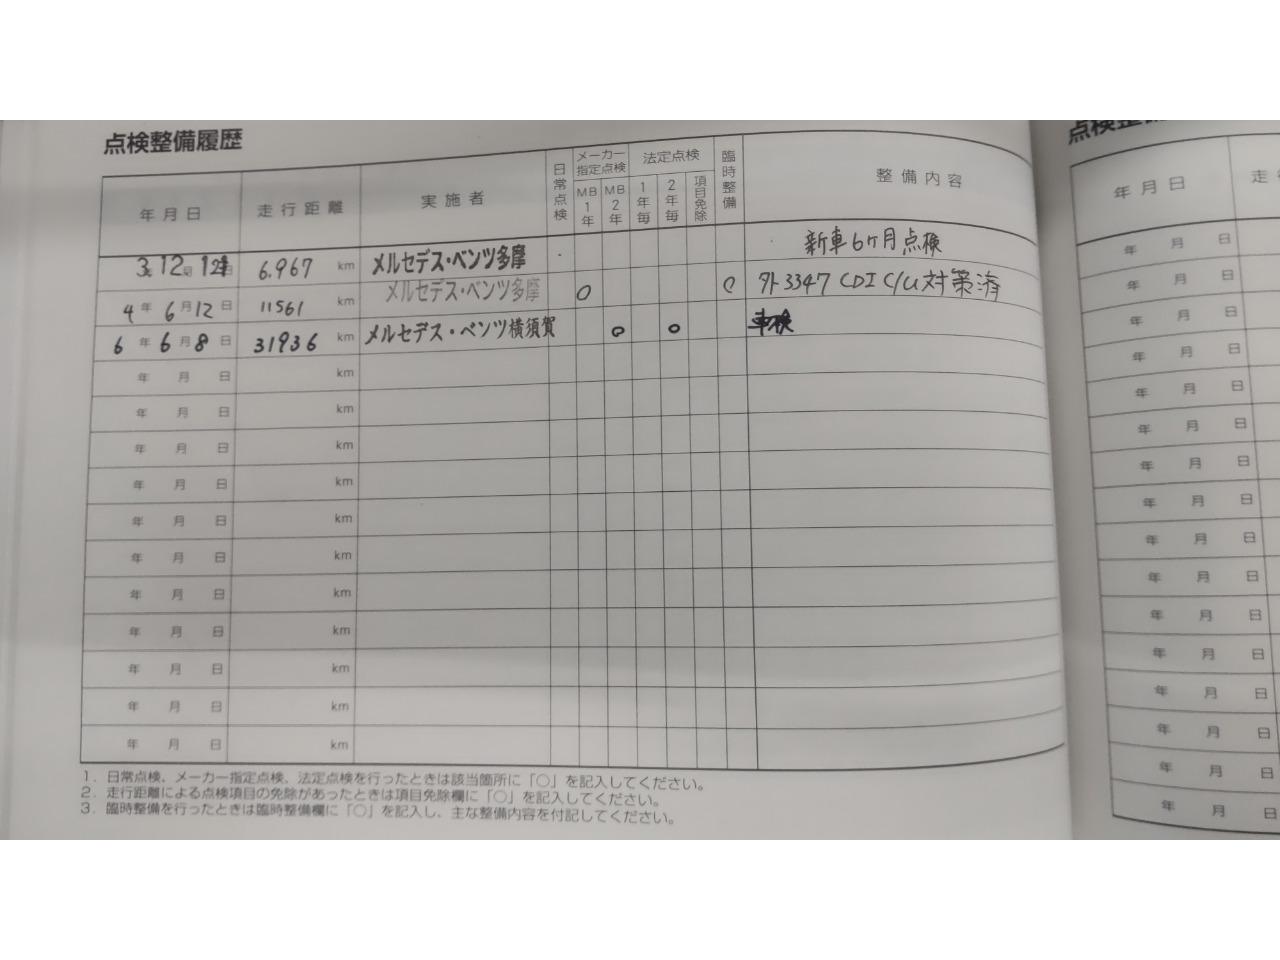 点検整備履歴
年月日 走行距離 実施者 日常点検 メーカー指定点検 MB1年 MB2年 法定点検 1年毎 2年毎 項目免除 臨時整備 整備内容
3年12月12日 6.967 km メルセデス・ベンツ多摩 新車6ヶ月点検
4年6月12日 11561 km メルセデス・ベンツ多摩 ○ ○ 外3347 CDI C/U対策済
6年6月8日 31936 km メルセデス・ベンツ横須賀 ○ ○ 車検
年 月 日 km
年 月 日 km
年 月 日 km
年 月 日 km
年 月 日 km
年 月 日 km
年 月 日 km
年 月 日 km
年 月 日 km
年 月 日 km
年 月 日 km
1. 日常点検、メーカー指定点検、法定点検を行ったときは該当箇所に「○」を記入してください。
2. 走行距離による点検項目の免除があったときは項目免除欄に「○」を記入してください。
3. 臨時整備を行ったときは臨時整備欄に「○」を記入し、主な整備内容を付記してください。
点検整
年月日 走
年 月 日
年 月 日
年 月 日
年 月 日
年 月 日
年 月 日
年 月 日
年 月 日
年 月 日
年 月 日
年 月 日
年 月 日
年 月 日
年 月 日
年 月 日
年 月 日